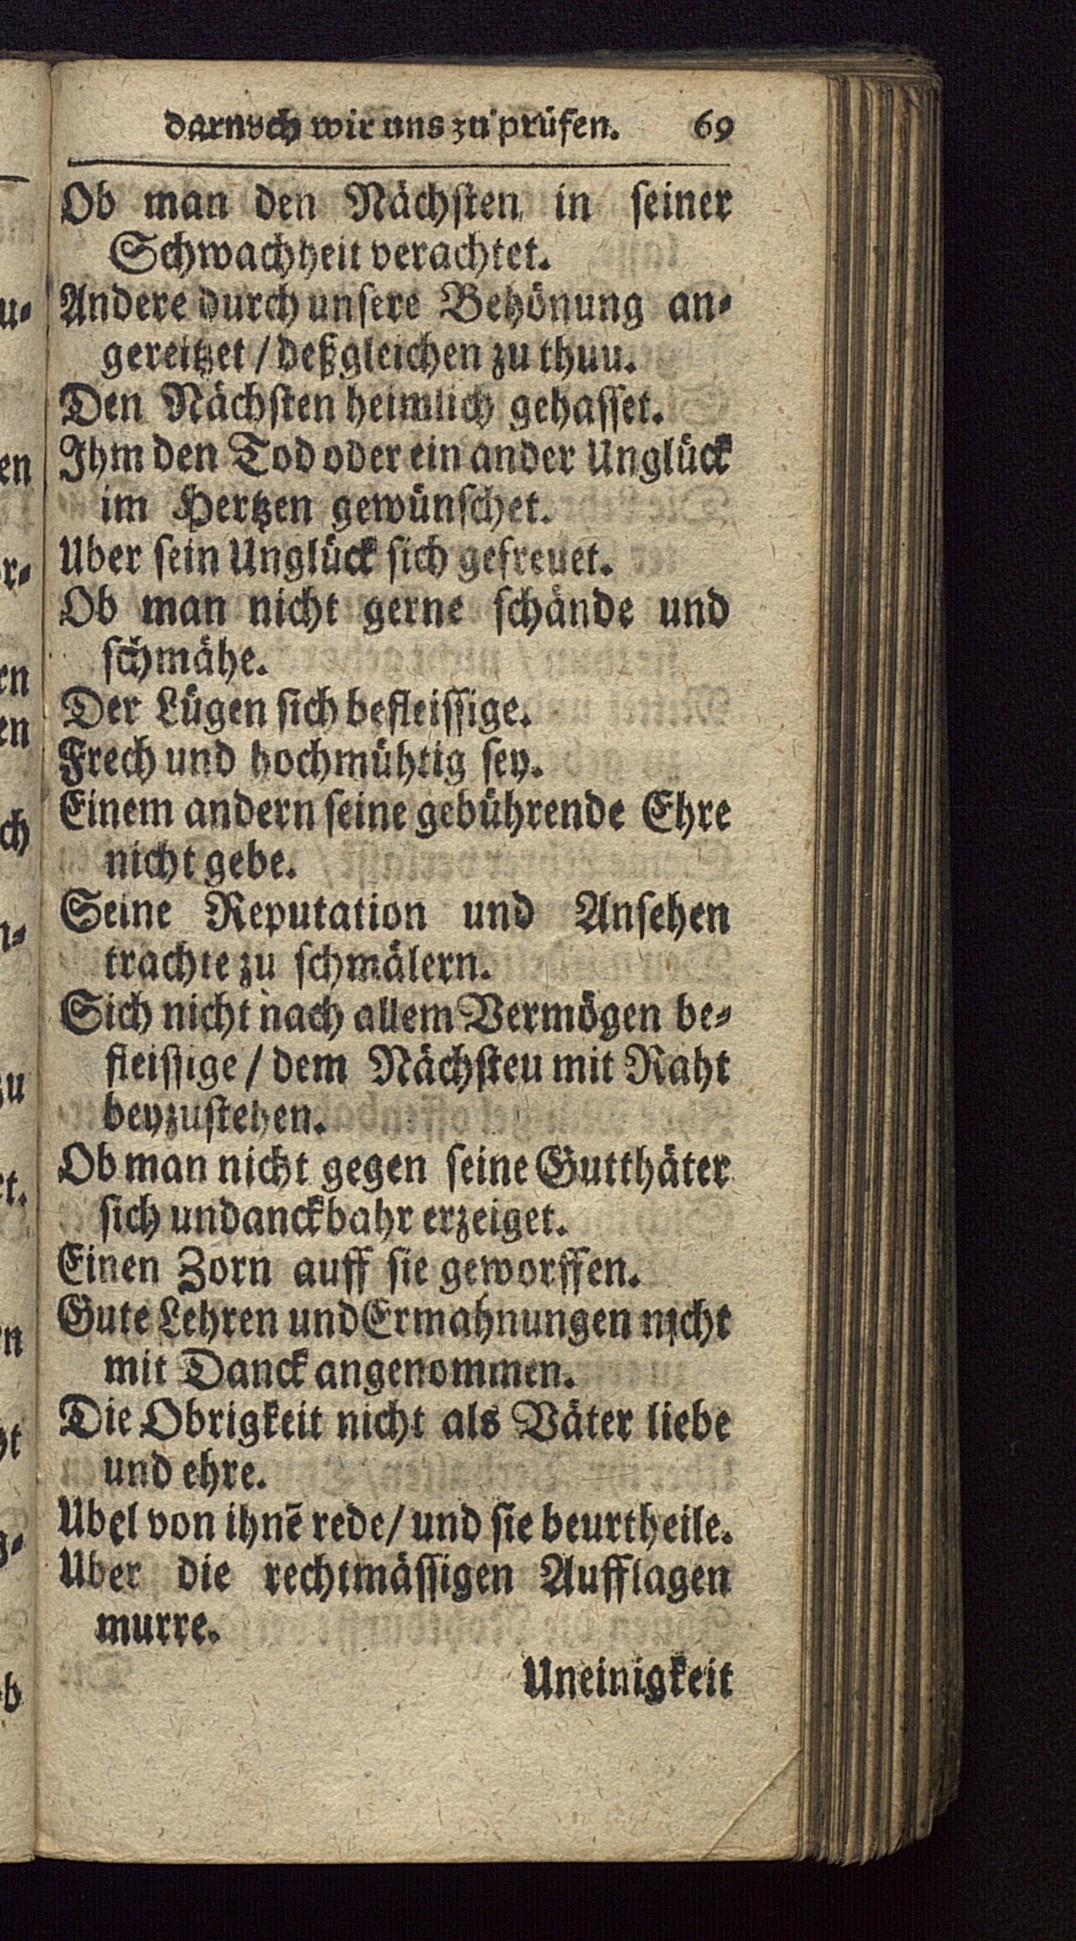 darnach wir uns zu prüfen. 69
Ob man den Nächsten in seiner
Schwachheit verachtet.
Andere durch unsere Behönung an-
gereitzet / deßgleichen zu thuu.
Den Nächsten heimlich gehasset.
Ihm den Tod oder ein ander Unglück
im Hertzen gewünschet.
Uber sein Unglück sich gefreuet.
Ob man nicht gerne schände und
schmähe.
Der Lügen sich befleissige.
Frech und hochmühtig sey.
Einem andern seine gebührende Ehre
nicht gebe.
Seine Reputation und Ansehen
trachte zu schmälern.
Sich nicht nach allem Vermögen be-
fleissige / dem Nächsteu mit Raht
beyzustehen.
Ob man nicht gegen seine Gutthäter
sich undanckbahr erzeiget.
Einen Zorn auff sie geworffen.
Gute Lehren und Ermahnungen nicht
mit Danck angenommen.
Die Obrigkeit nicht als Väter liebe
und ehre.
Ubel von ihnē rede / und sie beurtheile.
Uber die rechtmässigen Aufflagen
murre.
Uneinigkeit